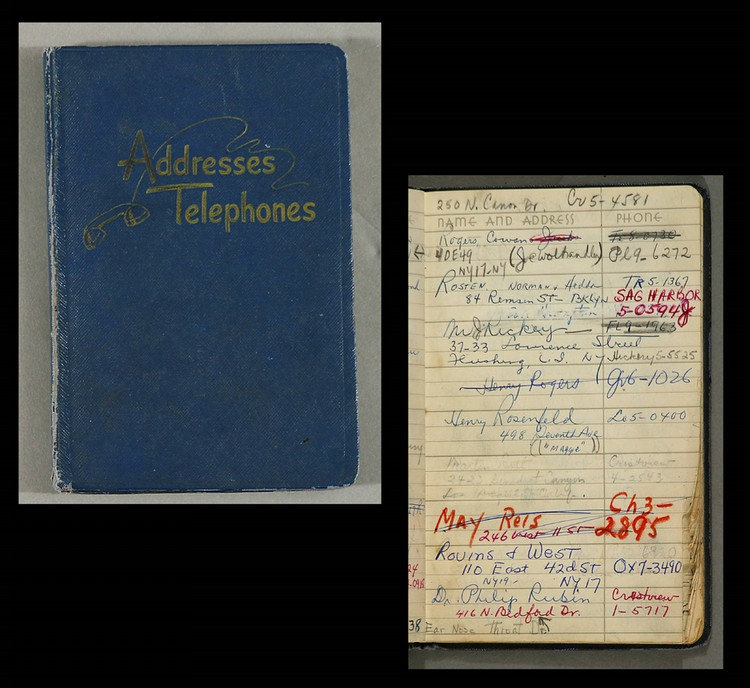 Addresses
Telephones
250 N. Canon Dr. Cr 5-4581
NAME AND ADDRESS PHONE
Rogers, Cowan
40E49 (Jewolhandler) PL9-6272
NY17-NY
ROSTEN NORMAN + Hedda TR5-1367
84 Remsen ST - BKLYN SAG HARBOR
5-0594
McJRickey FL9-1963
37-33 Lawrence Street
Flushing, L.I. NY Hickery 5-5525
Henry Rogers GV6-1026
Henry Rosenfeld Lo5-0400
498 Seventh Ave
("Maggie")
Crestview
2427 Canyon 4-2543
Los
MAY Reis Ch3-
246 West 11 St 2895
ROVINS & WEST
110 East 42d ST OX7-3490
NY19- NY17
Dr. Philip Rubin Crestview
416 N. Bedford Dr. 1-5717
38 Ear Nose Throat Dr